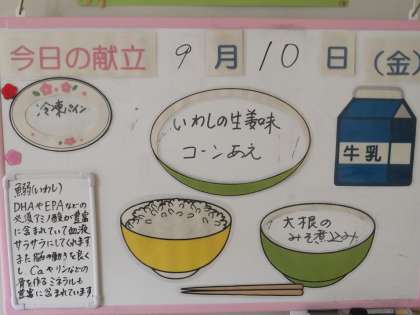 今日の献立 9月10日(金)
冷凍パイン
いわしの生姜味
コーンあえ
牛乳
大根の
みそ煮込み
鰯(いわし)
DHAやEPAなどの
必須アミノ酸が豊富
に含まれていて血液
サラサラにしてくれます
また脳の働きを良く
し Caやリンなどの
骨を作るミネラルも
豊富に含まれています